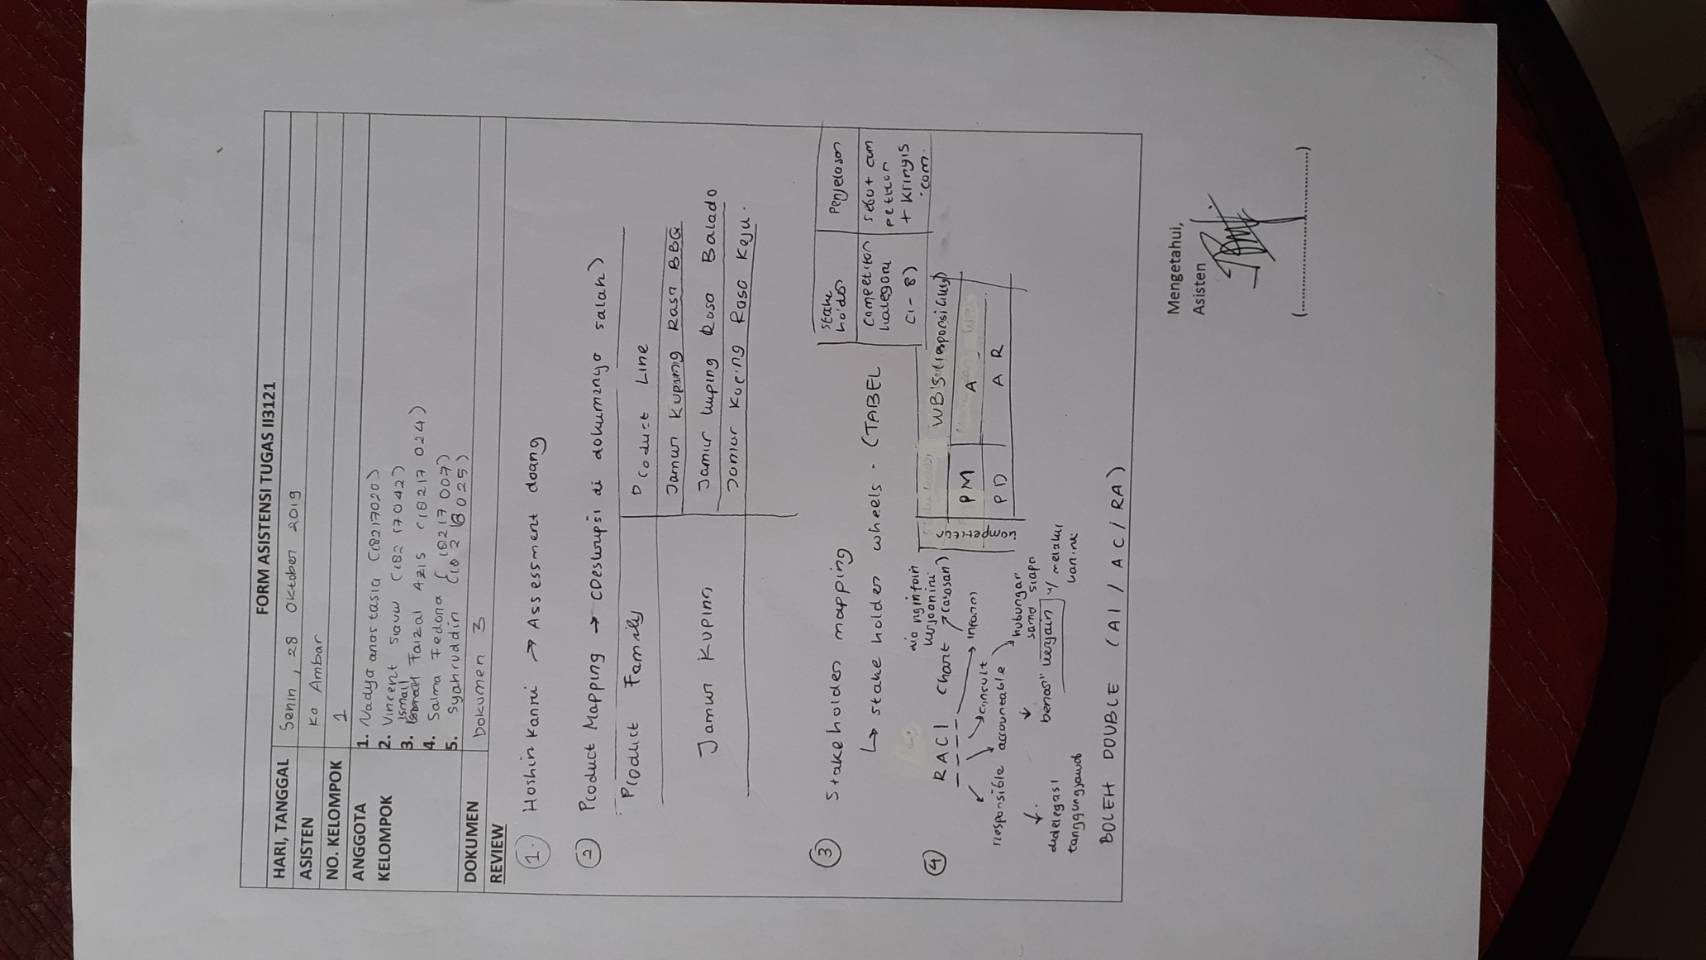 FORM ASISTENSI TUGAS II3121
HARI, TANGGAL Senin, 28 Oktober 2019
ASISTEN Ka Ambar
NO. KELOMPOK 1
ANGGOTA KELOMPOK
1. Nadya anastasia (18217020)
2. Vincent Siauw (18217042)
3. Ismail Faizal Azis (18217024)
4. Salma Fedona (18217007)
5. Syahruddin (18218025)
DOKUMEN Dokumen 3
REVIEW
1. Hoshin Kanri → Assessment doang
2 Product Mapping → (Deskripsi di dokumennya salah)
Product Family Product Line
Jamur Kuping
Jamur Kuping Rasa BBQ
Jamur kuping Rasa Balado
Jamur Kuping Rasa Keju.
3 Stakeholder mapping
↳ stake holder wheels. (TABEL
stake holder Penjelasan
competitor kategori (1-8)
sebut competitor + kringis.com.
4 RACI chart
yo nginfoin kerjaanini (atasan)
inform
consult
responsible accountable
hubungan sama siapa
didelegasi tanggungjawab
benar" kerjain
BOLEH DOUBLE (AI / AC / RA)
WBS (responsibility)
PM A
PD A R
Mengetahui,
Asisten
(....................................)